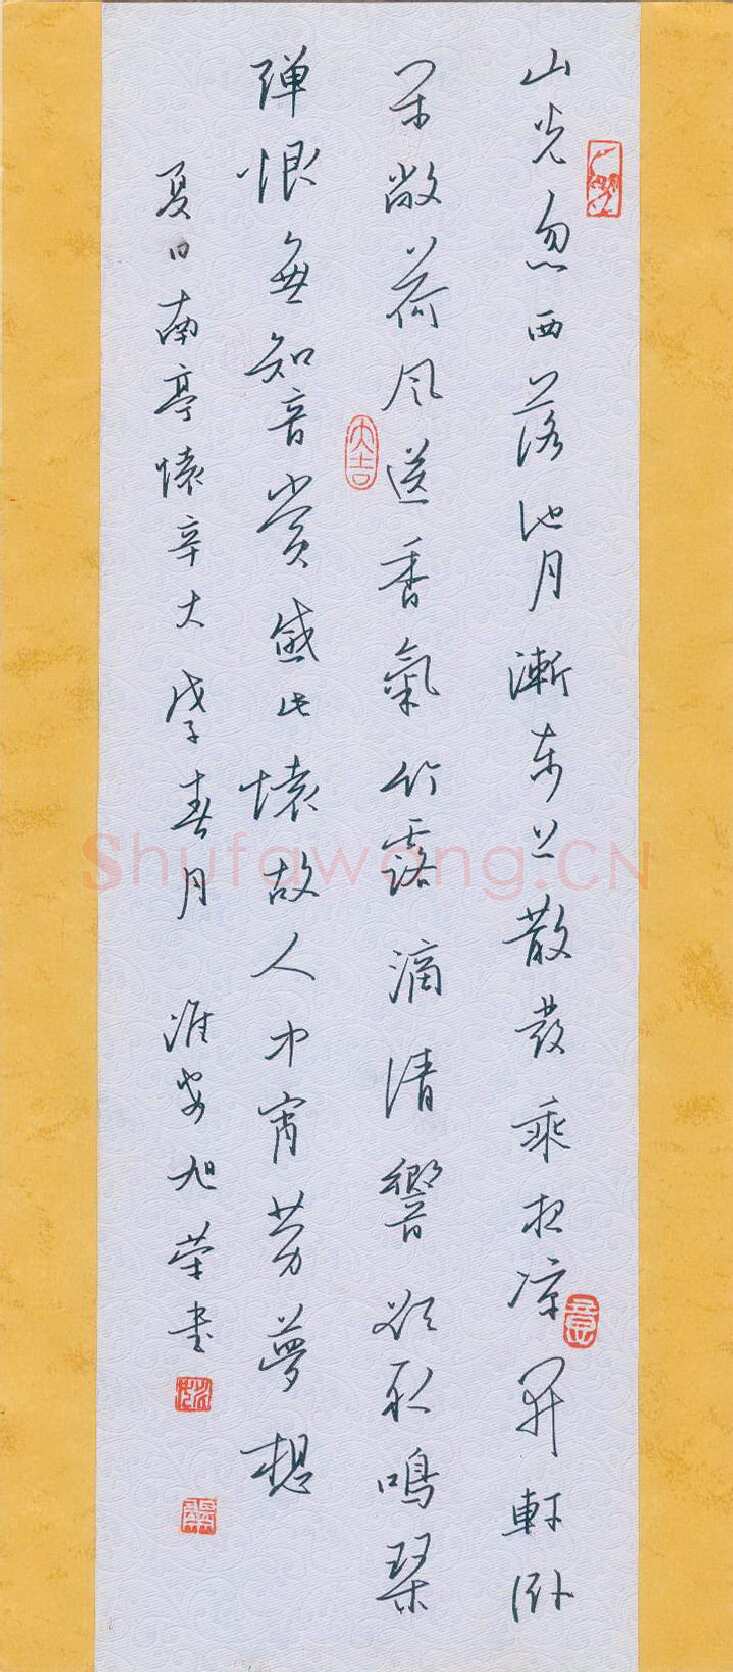 山光忽西落池月漸東上散發乘夜凉開軒卧
閑敞荷風送香氣竹露滴清響欲取鳴琴
弹恨無知音賞感此懷故人中宵劳夢想
夏日南亭懷辛大 戊子春月 淮安旭荣書
大吉
Shufawang.CN